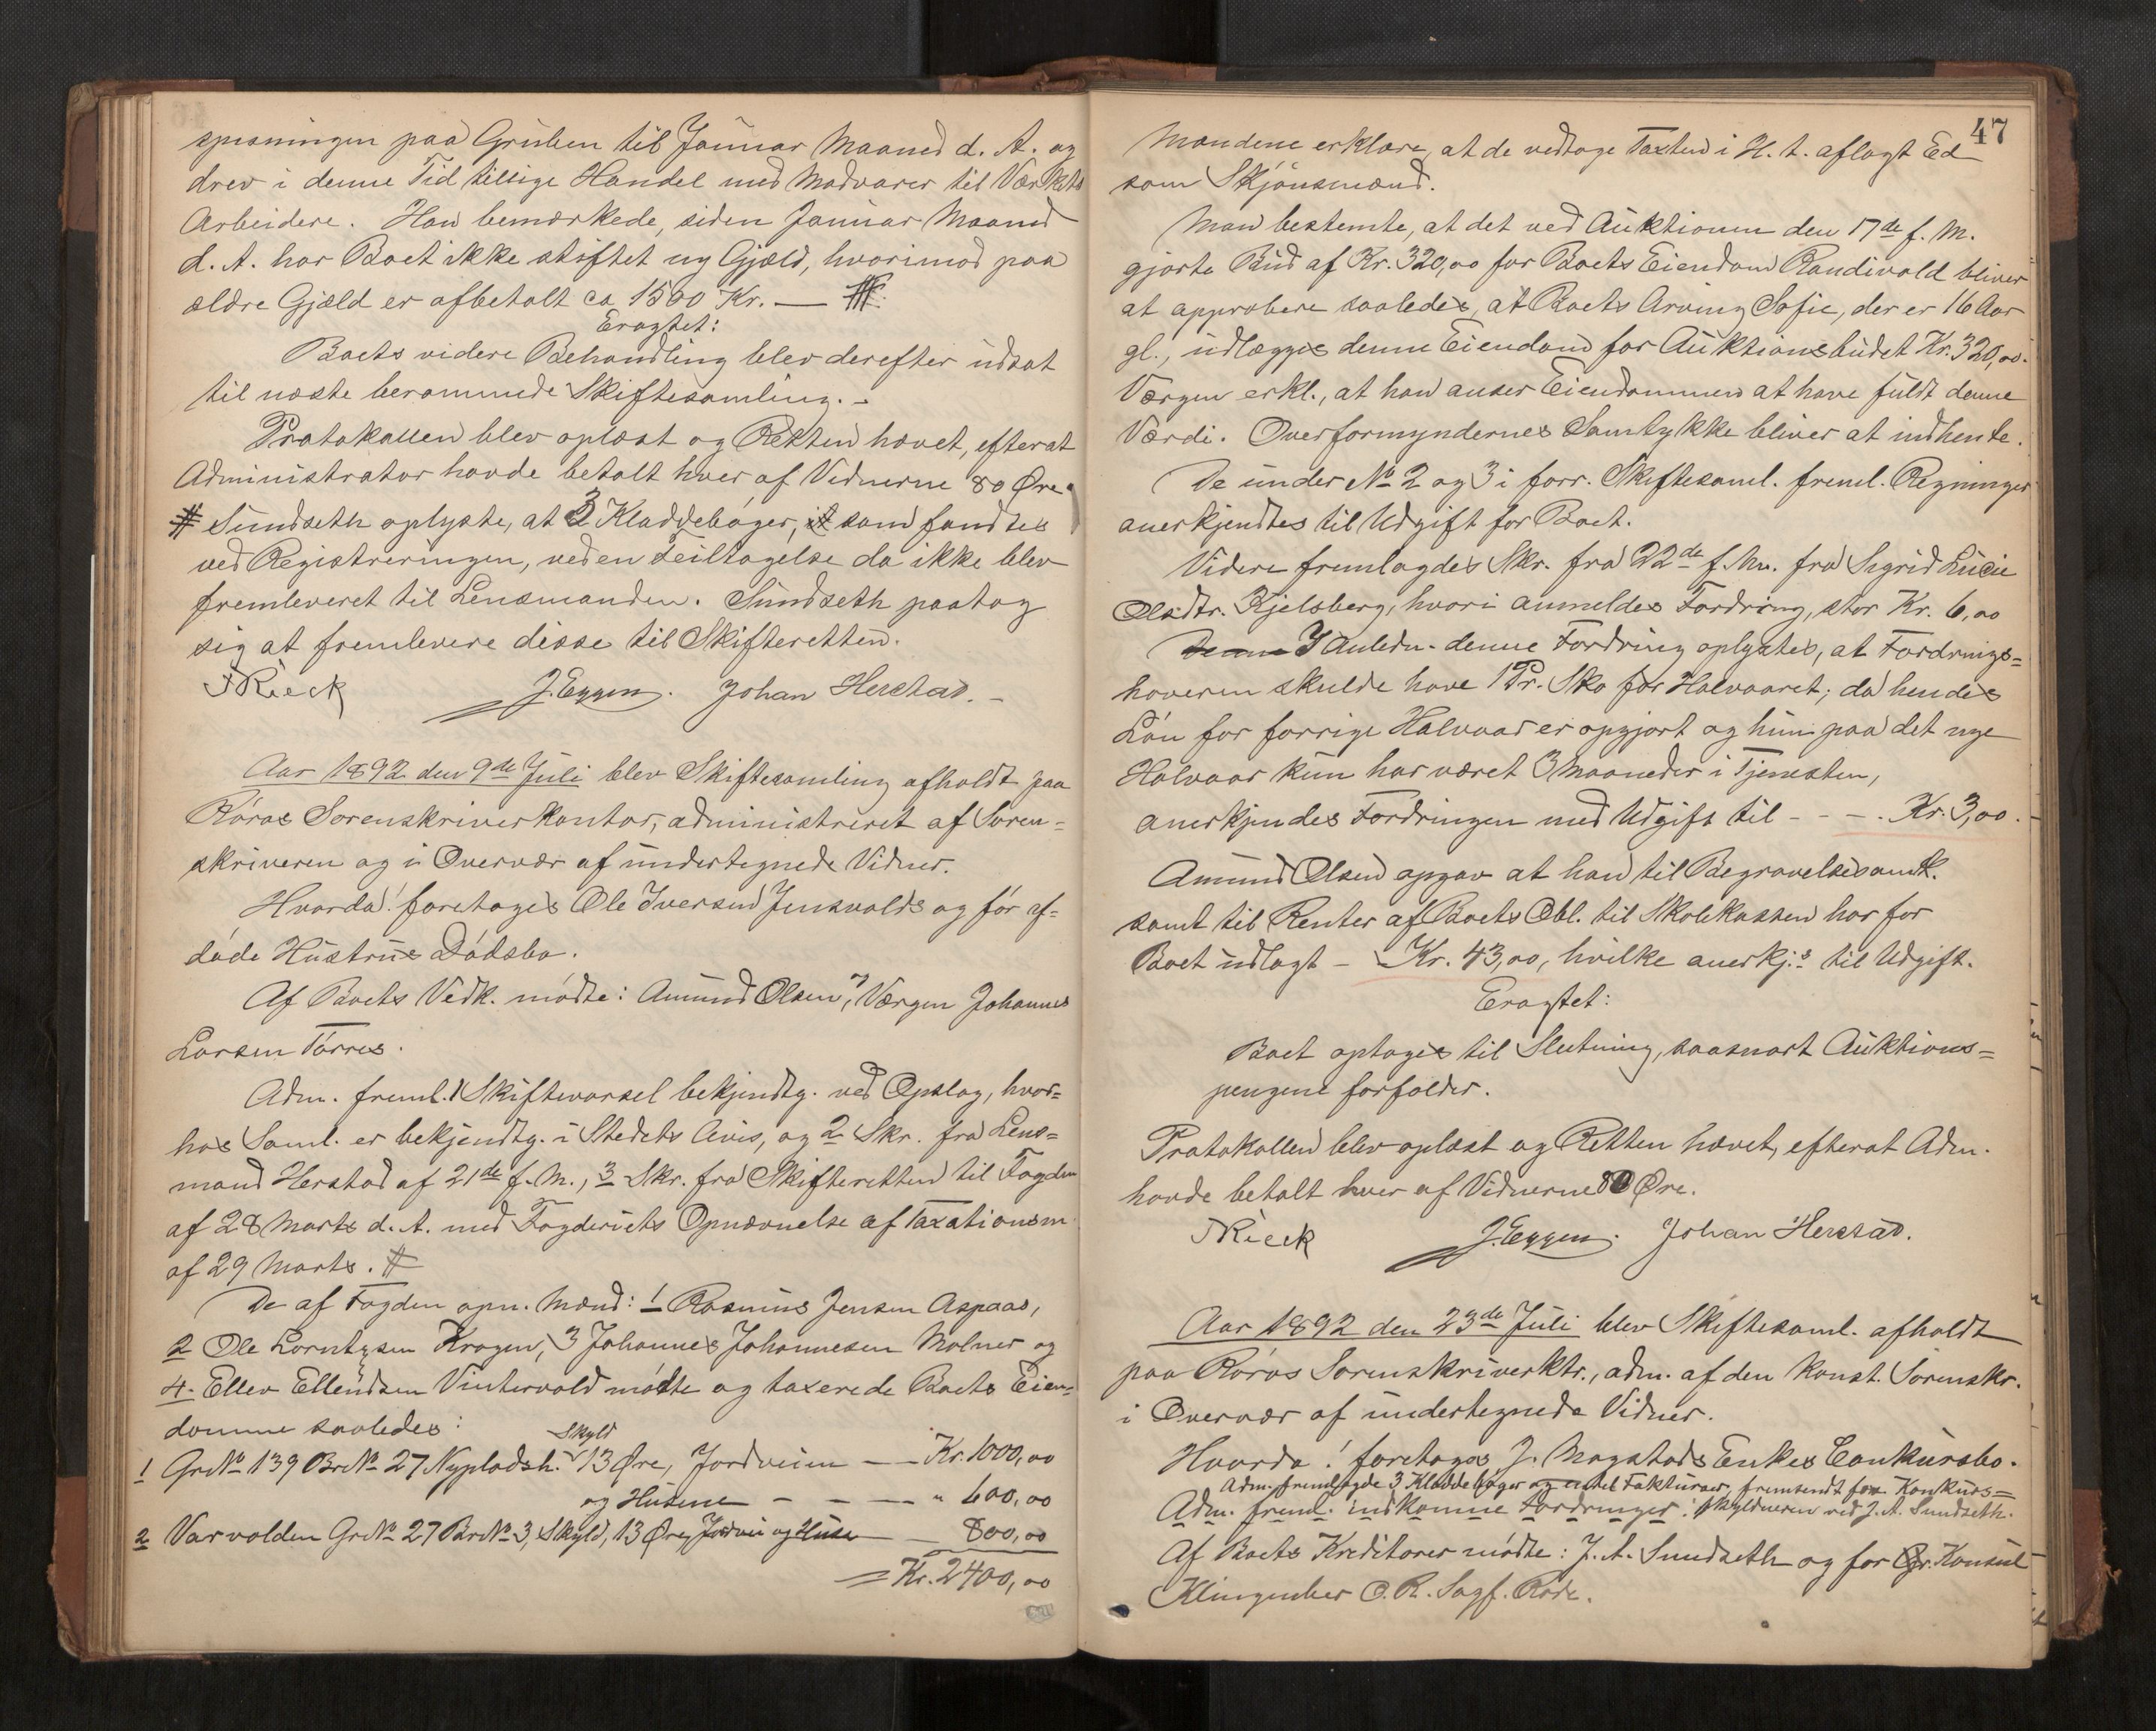 spisningen paa Gruben til Januar Maaned d. A. og
drev i denne Tid tillige Handel med Madvarer til Værkets
Arbeidere. Han bemærkede, siden Januar Maaned
d. A. har Boet ikke stiftet ny Gjæld, hvorimod paa
ældre Gjæld er afbetalt ca 1500 Kr. — #:
Eragtet:
Boets videre Behandling blev derefter udsat
til næste berammede Skiftesamling. -
Protokollen blev oplæst og Retten hævet, efterat
Administrator havde betalt hver af Vidnerne 80 Øre.
# Sundseth oplyste, at 3 Kladdebøger, som fandtes
ved Registreringen, ved en Feiltagelse da ikke blev
fremleveret til Lensmanden. Sundseth paatog
sig at fremlevere disse til Skifteretten.
Rieck J. Eggen. Johan Herstad. -
Aar 1892 den 9de Juli blev Skiftesamling afholdt paa
Røros Sorenskriverkontor, administreret af Soren=
skriveren og i Overvær af undertegnede Vidner.
Hvorda! foretoges Ole Iversen Jensvolds og før af=
døde Hustrus Dødsbo.
Af Boets Vedk. mødte: Amund Olsen, Værgen Johannes
Larsen Tørres.
Adm. freml. 1 Skiftevarsel bekjendtg. ved Opslag, hvor=
hos Saml. er bekjendtg. i Stedets Avis, og 2 Skr. fra Lens=
mand Herstad af 21de f. M., 3 Skr. fra Skifteretten til Fogden
af 28 Marts d. A. med Fogderiets Opnævnelse af Taxationsm
af 29 Marts. #
De af Fogden opn. Mænd: 1 Rasmus Jensen Aspaas,
2 Ole Lorntzen Kragen, 3 Johannes Johannesen Molner og
4. Ellev Ellendsen Vintervold mødte og taxerede Boets Eien=
domme saaledes:
Skyld
1 Gr№ 139 Br№ 27 Nypladsh. 13 Øre, Jordveien — Kr. 1000,00
og Husene - - — " 600,00
2 Varvolden Gr№ 27 Br№ 3, Skyld, 13 Øre, Jordvei og Huse — 800,00
= Kr. 2400,00
47
Mændene erklære, at de vedtage Taxten i H. t. aflagt Ed
som Skjønsmænd.
Man bestemte, at det ved Auktionen den 17de f. M.
gjorte Bud af Kr. 320,00 for Boets Eiendom Randivold bliver
at approbere saaledes, at Boets Arving Sofie, der er 16 Aar
gl., udlægges denne Eiendom for Auktionsbudet Kr. 320,00.
Værgen erkl., at han anser Eiendommen at have fuldt denne
Værdi. Overformyndernes Samtykke bliver at indhente.
De under № 2 og 3 i forr. Skiftesaml. freml. Regninger
anerkjendtes til Udgift for Boet.
Videre fremlagdes Skr. fra 22de f. M. fra Sigrid Lucie
Olsdtr. Kjelsberg, hvori anmeldes Fordring, stor Kr. 6,00
I Anledn. denne Fordring oplystes, at Fordrings=
haveren skulde have 1 Pr. Sko for Halvaaret; da hendes
Løn for forrige Halvaar er opgjort og hun paa det nye
Halvaar kun har været 3 Maaneder i Tjenesten,
anerkjendes Fordringen med Udgift til - - -. Kr. 3,00.
Amund Olsen opgav at han til Begravelsesomk.
samt til Renter af Boets Obl. til Skolekassen har for
Boet udlagt - Kr. 43,00, hvilke anerkj.s til Udgift.
Eragtet:
Boet optages til Slutning, saasnart Auktions=
pengene forfalder.
Protokollen blev oplæst og Retten hævet, efterat Adm.
havde betalt hver af Vidnerne 80 Øre.
Rieck J. Eggen. Johan Herstad.
Aar 1892 den 23de Juli blev Skiftesaml. afholdt
paa Røros Sorenskriverktr., adm. af den konst. Sorenskr.
i Overvær af undertegnede Vidner.
Hvorda! foretoges J. Magstads Enkes Conkursbo.
Adm. fremlagde 3 Kladdebøger og endel Fakturaer, fremsendt fra Konkurs=
Adm. freml. indkomne Fordringer: skyldneren ved J. A. Sundseth.
Af Boets Kreditorer mødte: J. A. Sundseth og for Gr. Konsul
Klingenber O. R. Sagf. Rode.